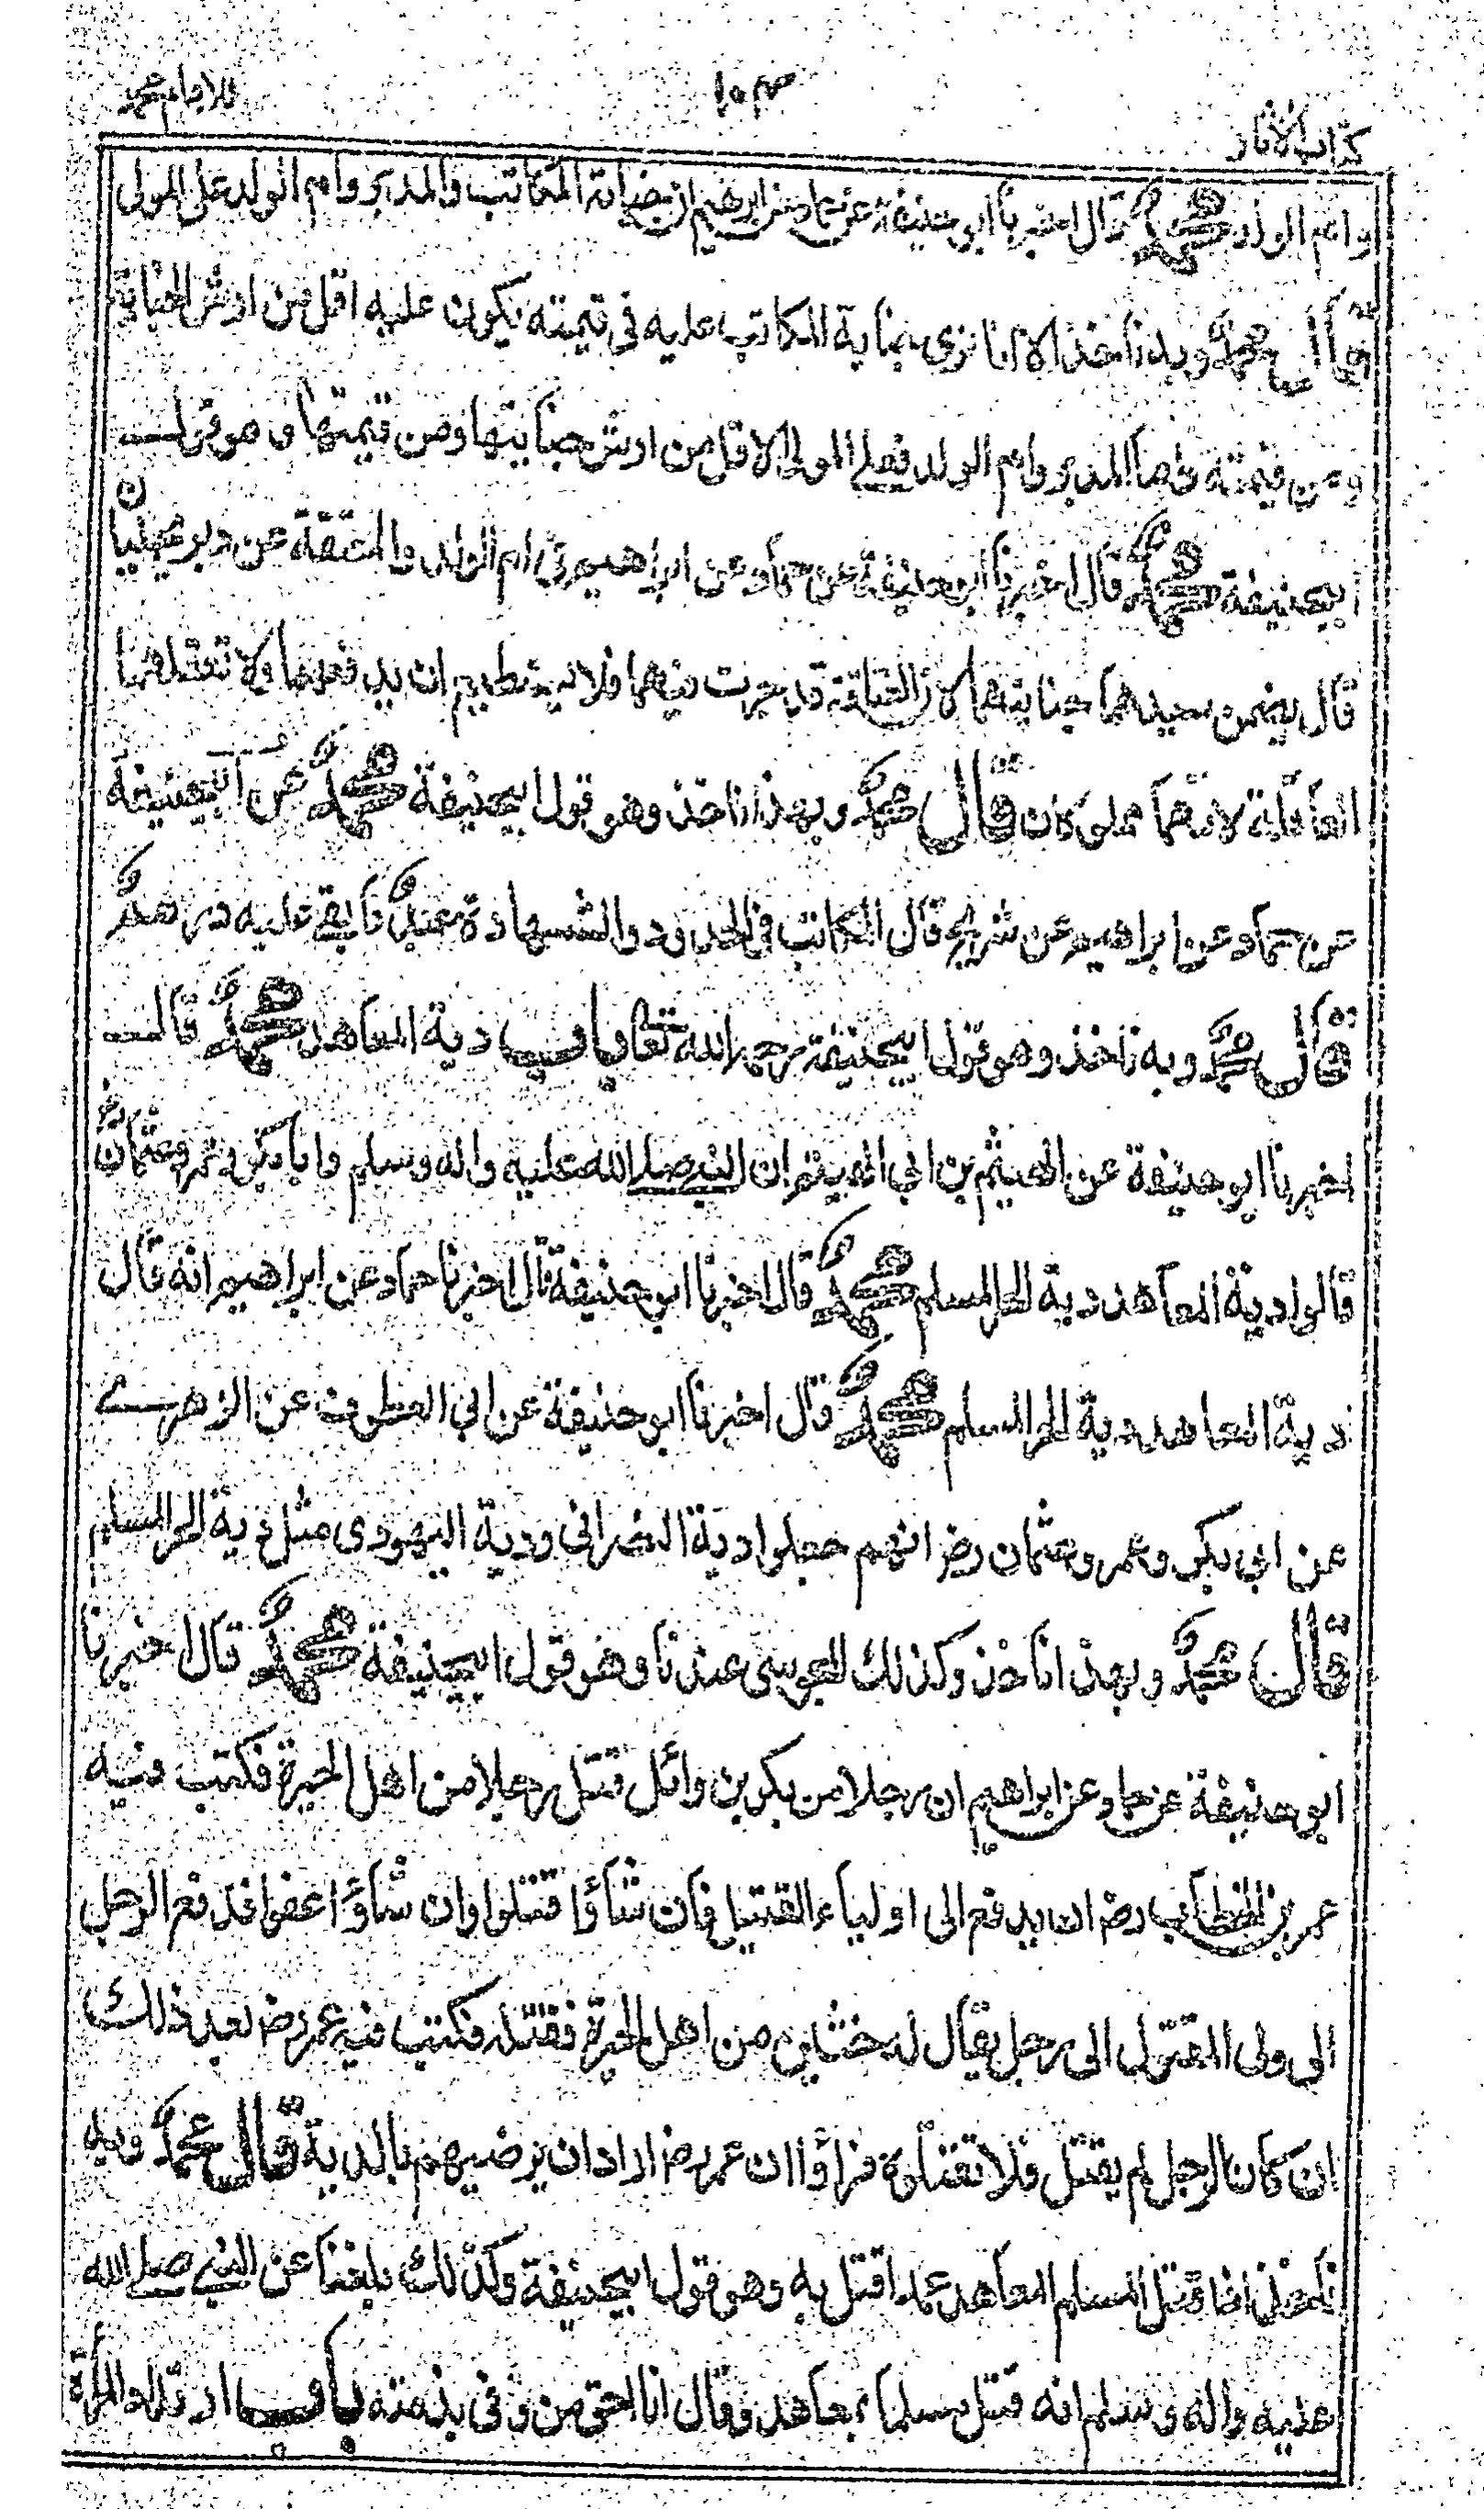 كتاب الاثار ١٠٣ للامام محمد
وام الولد محمد قال اخبرنا ابو حنيفة عن حماد عن ابرهيم ان جناية المكاتب والمدبر وام الولد على المولى
قال محمد وبه ناخذ الا انا نرى جناية المكاتب عليه فى قيمته يكون عليه اقل من ارش الجناية
ومن قيمته واما المدبر وام الولد فعلى المولى الاقل من ارش جنايتها ومن قيمتها وهو قول
ابيحنيفة محمد قال اخبرنا ابو حنيفة عن حماد عن ابراهيم فى ام الولد والمعتقة عن دبر يجنيان
قال يضمن سيدهما جنايتهما لان العتاقة قد جرت فيهما فلا يستطيع ان يدفعهما ولا تعقلهما
العاقلة لانهما مملوكان قال محمد وبهذا ناخذ وهو قول ابيحنيفة محمد عن ابيحنيفة
عن حماد عن ابراهيم عن شريح قال المكاتب فى الحدود والشهادة عبد ما بقى عليه درهم
قال محمد وبه ناخذ وهو قول ابيحنيفة رحمه الله تعالى باب دية المعاهد محمد قال
اخبرنا ابو حنيفة عن الهيثم بن ابى الهيثم ان النبى صلى الله عليه واله وسلم وابا بكر وعمر وعثمان رض
قالوا دية المعاهد دية الحر المسلم محمد قال اخبرنا ابو حنيفة قال اخبرنا حماد عن ابراهيم انه قال
دية المعاهد دية الحر المسلم محمد قال اخبرنا ابو حنيفة عن ابى العطوف عن الزهرى
عن ابى بكر وعمر وعثمان رض انهم جعلوا دية النصرانى ودية اليهودى مثل دية الحر المسلم
قال محمد وبهذا ناخذ وكذلك المجوسى عندنا وهو قول ابيحنيفة محمد قال اخبرنا
ابو حنيفة عن حماد عن ابراهيم ان رجلا من بكر بن وائل قتل رجلا من اهل الحيرة فكتب فيه
عمر بن الخطاب رض ان يدفع الى اولياء القتيل فان شاؤا قتلوا وان شاؤا عفوا فدفع الرجل
الى ولى المقتول الى رجل يقال له من اهل الحيرة فقتله فكتب فيه عمر رض بعد ذلك
ان كان الرجل لم يقتل فلا تقتلوه فرأوا ان عمر رض اراد ان يرضيهم بالدية قال محمد وبه
ناخذ اذا قتل المسلم المعاهد عمدا قتل به وهو قول ابيحنيفة وكذلك بلغنا عن النبى صلى الله
عليه واله وسلم انه قتل مسلما بمعاهد وقال انا احق من وفى بذمته باب المرأة